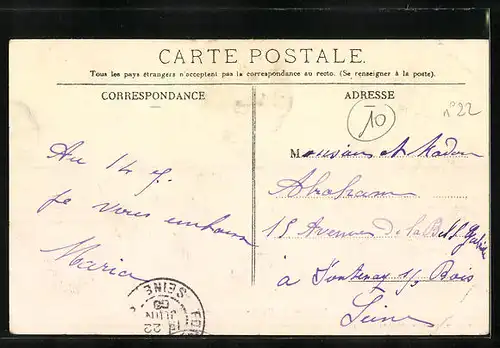 CARTE POSTALE.
Tous les pays étrangers n'acceptent pas la correspondance au recto. (Se renseigner à la poste).
CORRESPONDANCE
ADRESSE
10
n° 22
Au 14 J.
Je vous embrasse
Maria
Monsieur et Madame
Abraham
15 Avenue de la Belle Gabrielle
à Fontenay s/ Bois
Seine
SEINE
22
JUIN
09